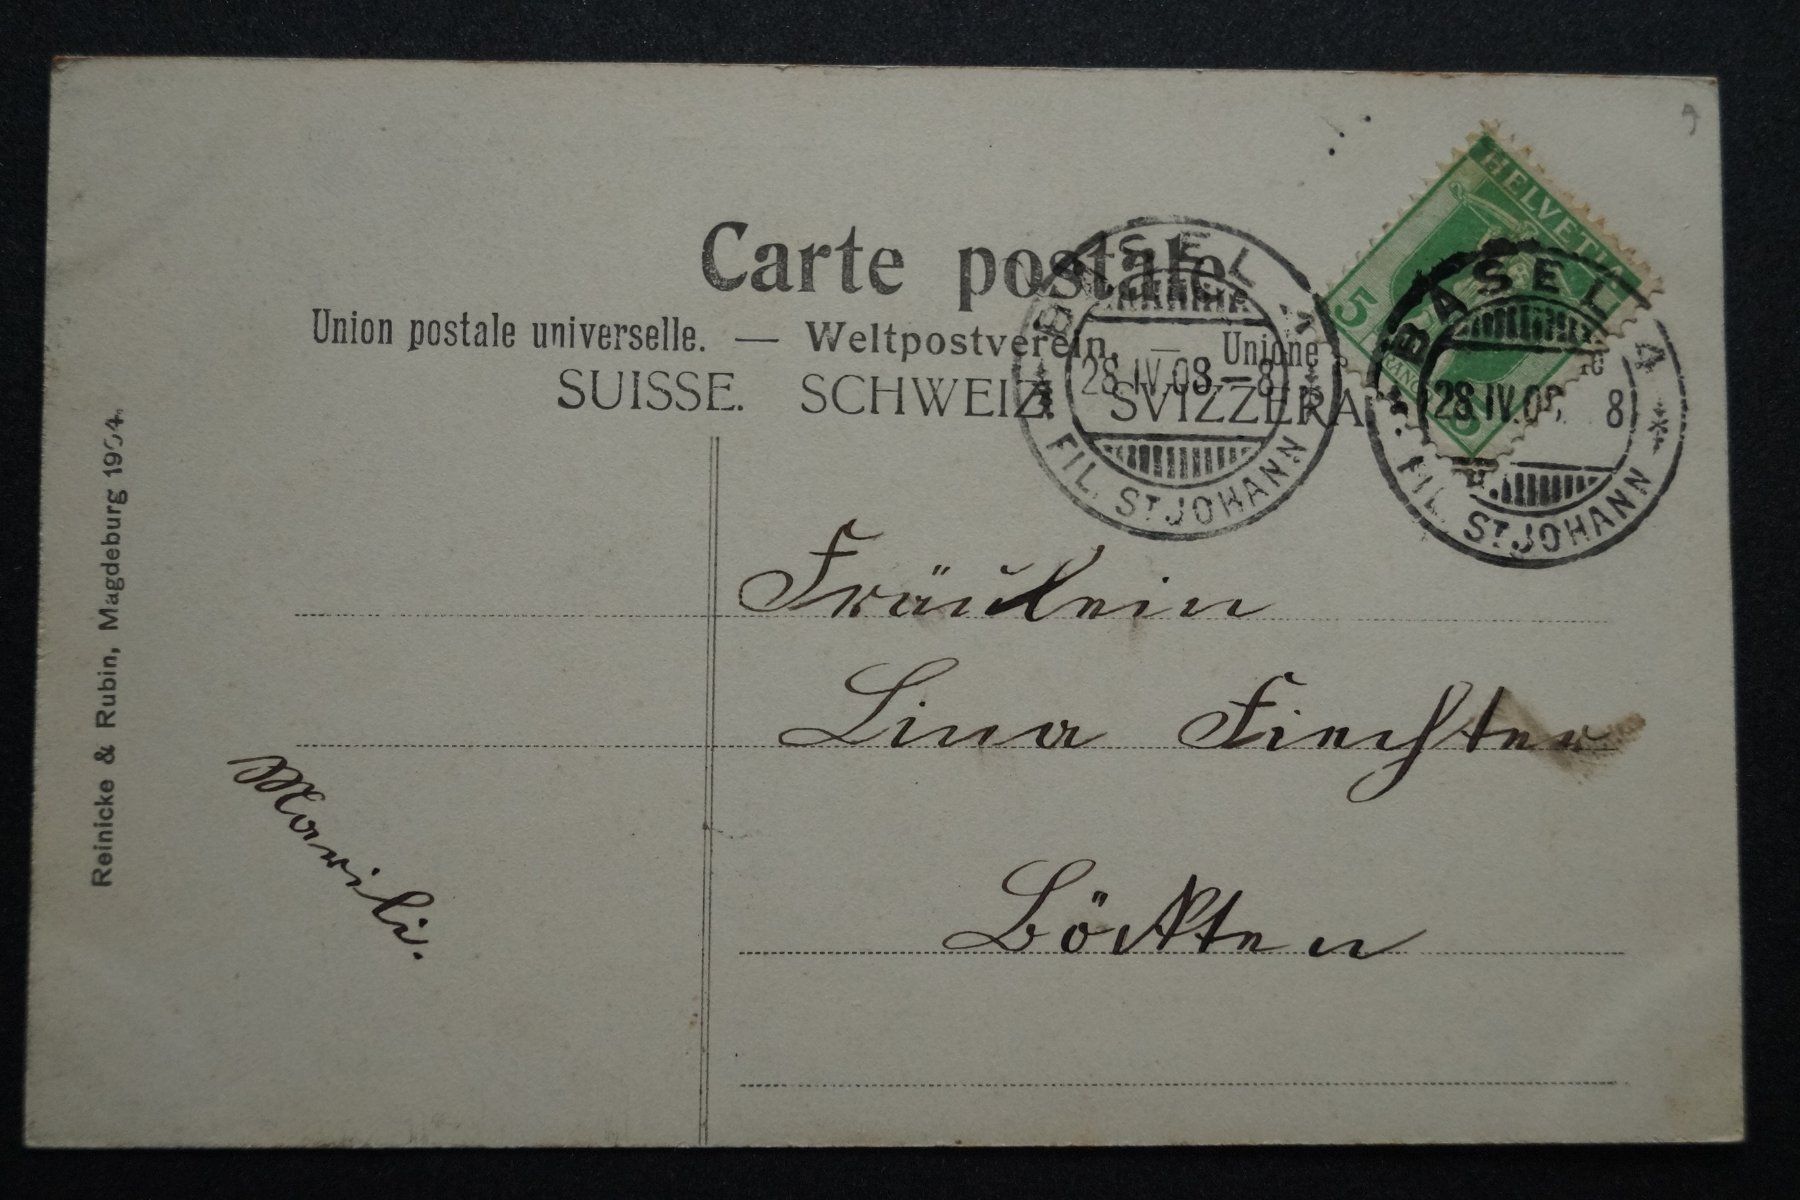 Carte postale
Union postale universelle. — Weltpostverein. — Unione
SUISSE. SCHWEIZ. SVIZZERA
HELVETIA
5
FRANCO
5
BASEL 4
28.IV.08.–8
FIL. ST. JOHANN
BASEL 4
28.IV.08. 8
FIL. ST. JOHANN
Fräulein
Lina Fiechter
Böckten
Marili.
Reinicke & Rubin, Magdeburg 1904.